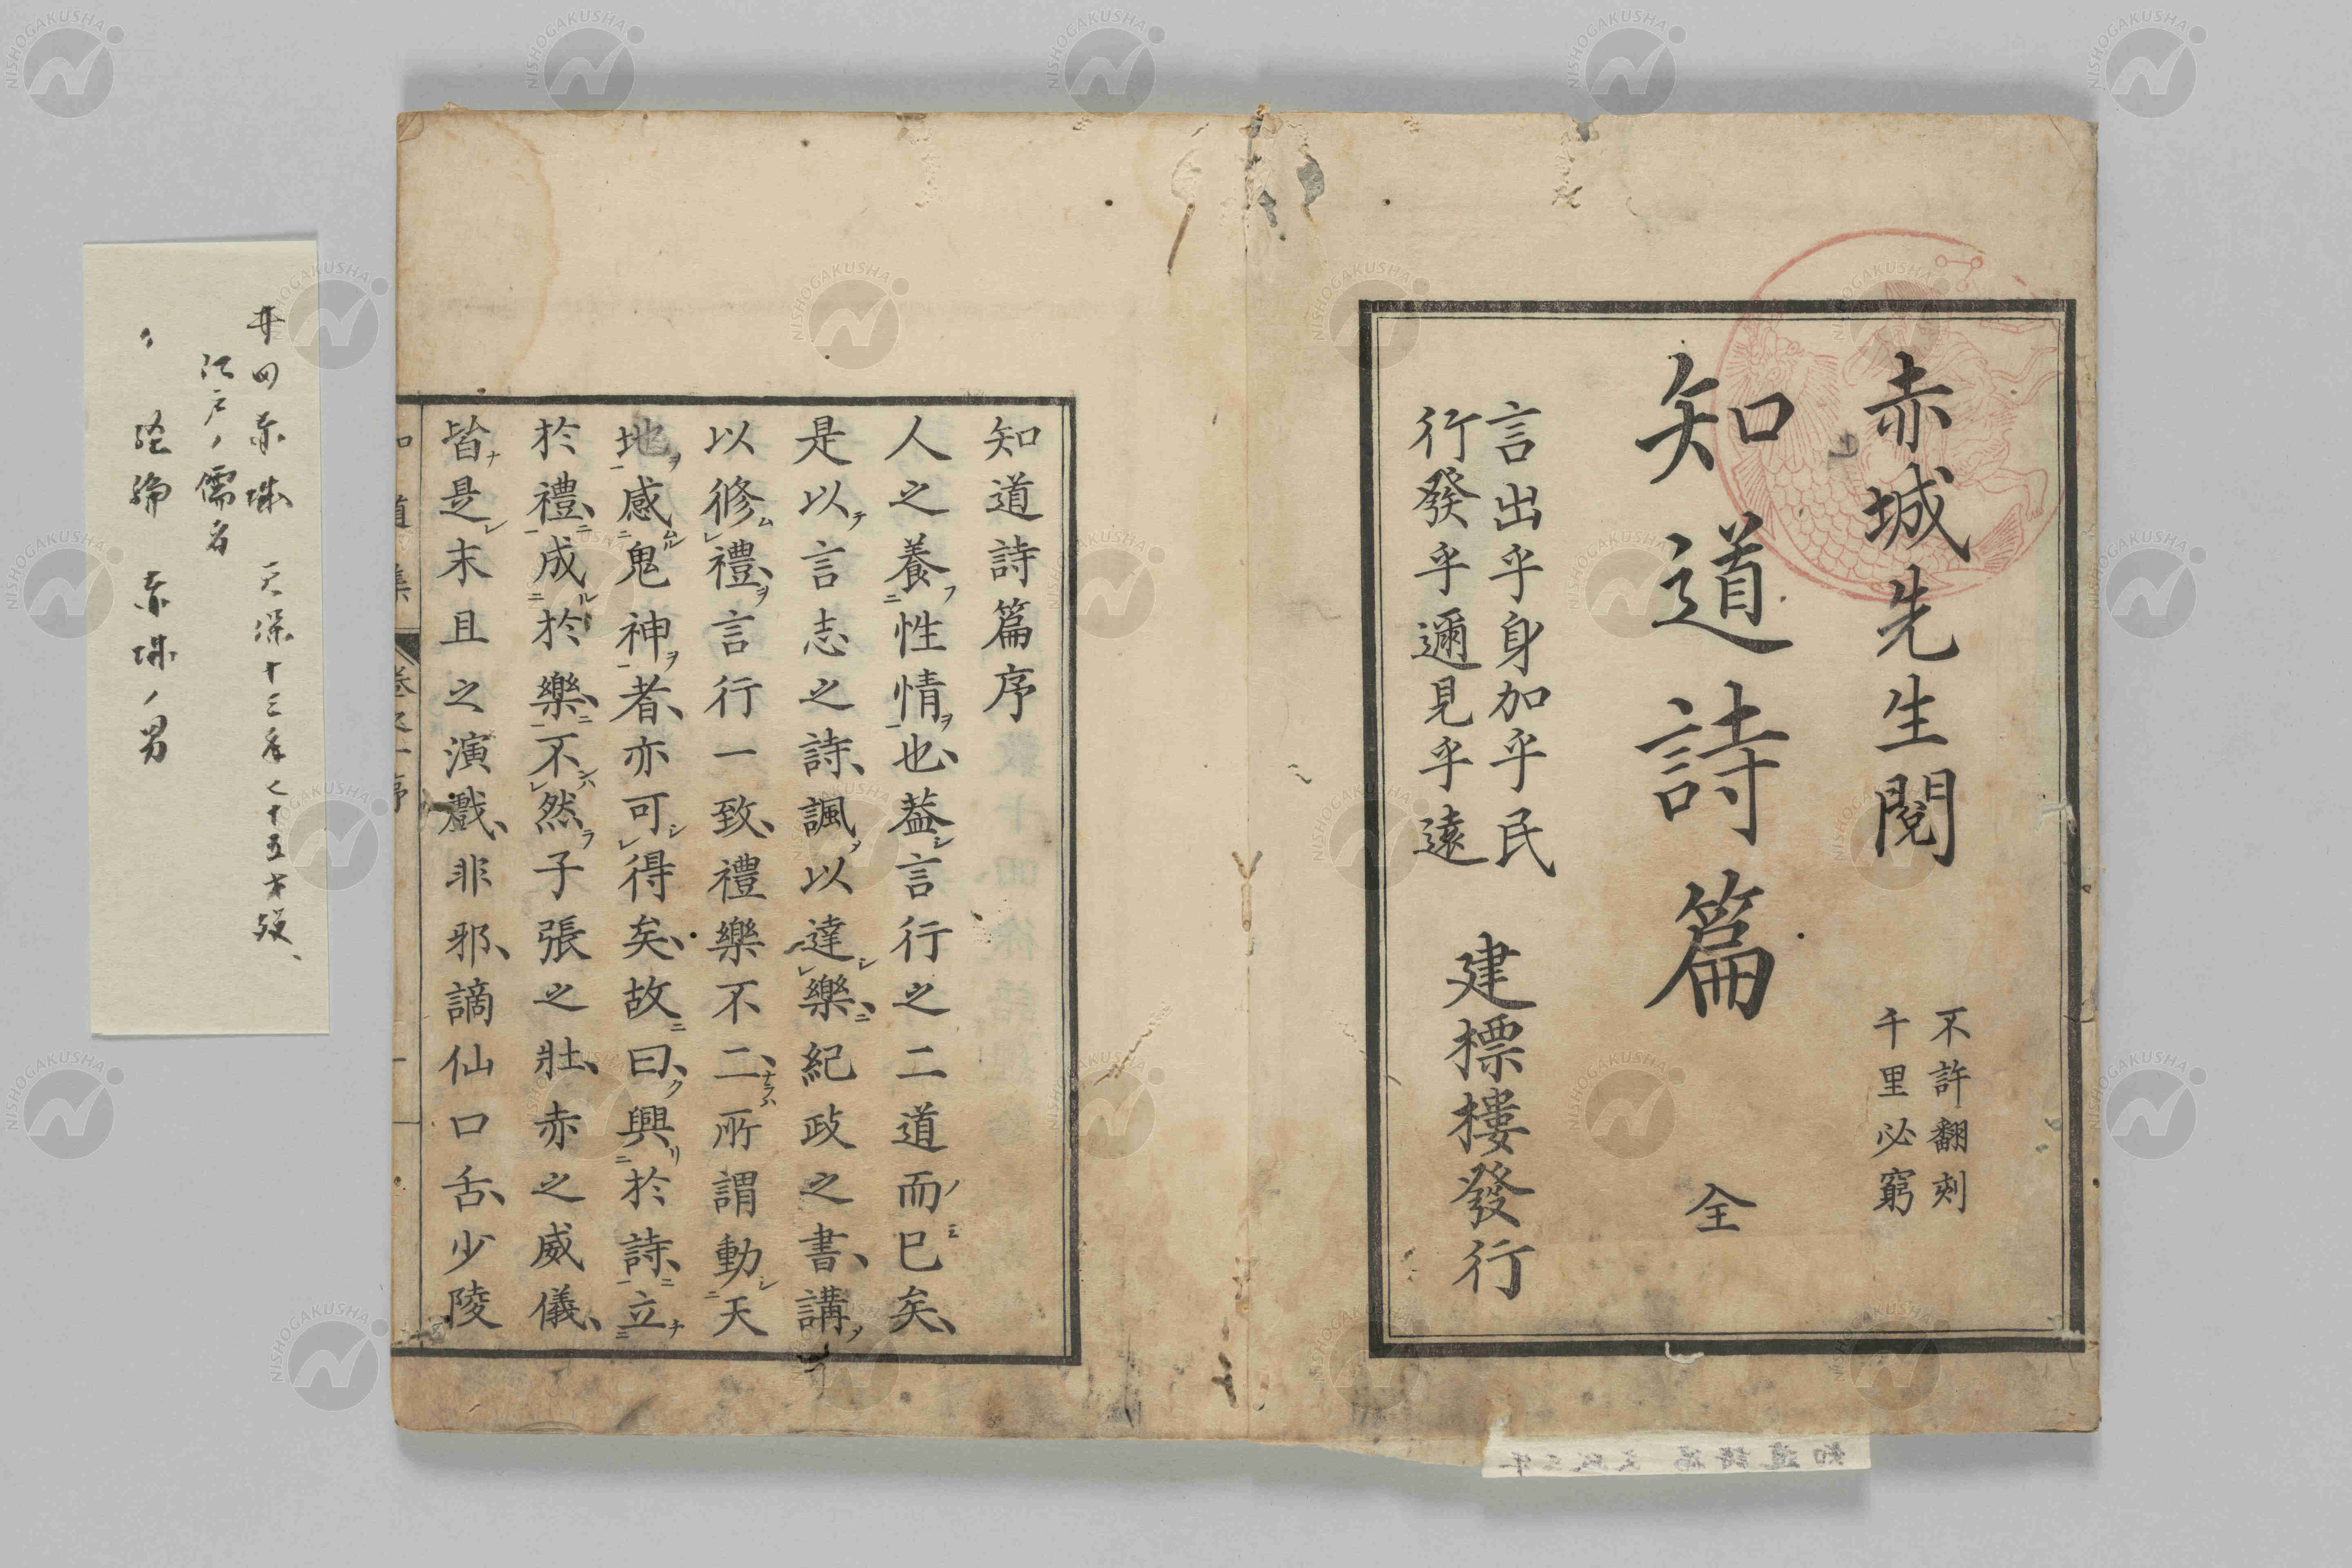 赤城先生閲
不許翻刻
千里必窮
知道詩篇 全
言出乎身加乎民
行發乎邇見乎遠
建標樓發行
知道詩篇序
人之養性情也、蓋言行之二道而已矣、
是以言志之詩、諷以達樂、紀政之書、講
以修禮、言行一致、禮樂不二、所謂動天
地感鬼神者、亦可得矣、故曰、興於詩、立
於禮、成於樂、不然子張之壯、赤之威儀、
皆是末且之演戲、非邪、謫仙口舌、少陵
井田赤城 天保十三年七十五才歿、
江戸ノ儒者
〃 経綸 赤城ノ男
知道詩篇 文政三年
NISHOGAKUSHA